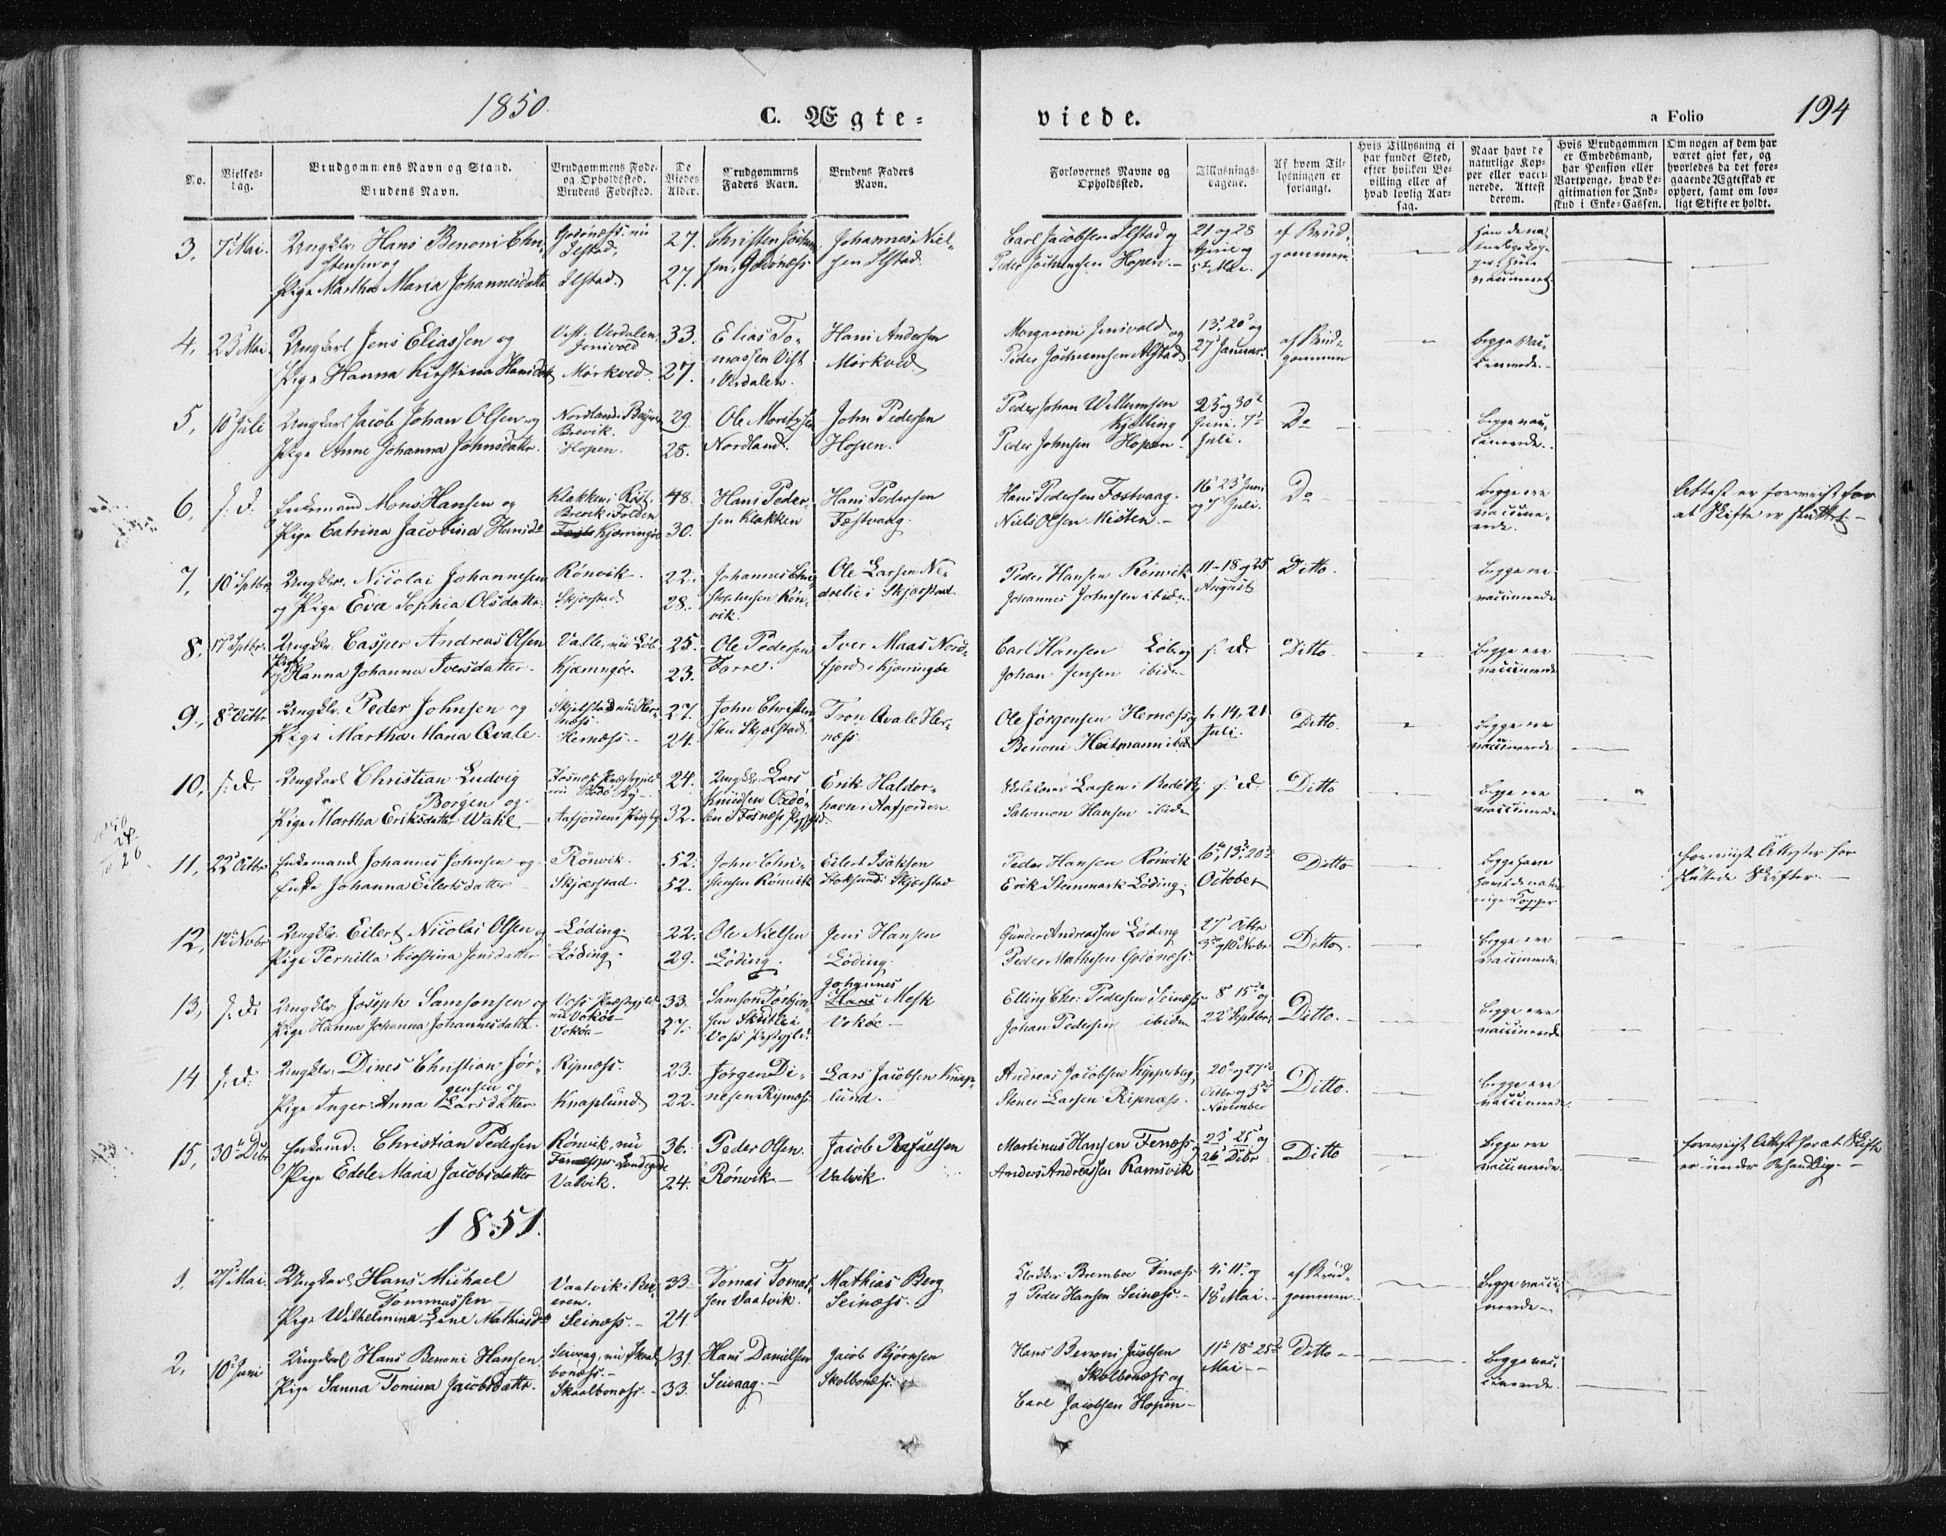 1850.
C. Ægte-
viede.
a Folio
194
No.
Vielses-
dag.
Brudgommens Navn og Stand.
Brudens Navn.
Brudgommens Føde-
og Opholdssted.
Brudens Fødested.
De
Viedes
Alder.
Brudgommens
Faders Navn.
Brudens Faders
Navn.
Forlovernes Navne og
Opholdssted.
Tillysnings-
dagene.
Af hvem Til-
lysningen er
forlangt.
Hvis Tillysning ei
har fundet Sted,
efter hvilken Be-
villing eller af
hvad lovlig Aar-
sag.
Naar havt de
naturlige Kop-
per eller vacci-
nerede. Attest
derom.
Hvis Brudgommen
er Embedsmand,
har Pension eller
Vartpenge, hvad Le-
gitimation for Ind-
skud i Enke-Cassen.
Om nogen af dem har
været givt før, og
hvorledes da det fore-
gaaende Ægteskab er
ophørt, samt om lov-
ligt Skifte er holdt.
3, 7 Mai. Ungklr. Hans Benoni Chri-
stensen og
Pige Martha Maria Johannesdatter
Godønæss nu
Ilstad.
Ilstad.
27.
27.
Christen Jochum-
sen, Godønæss
Johannes Niel-
sen Ilstad.
Carl Jacobsen Ilstad og
Peder Jochumsen Hopen.-
21 og 28
April og
5te Mai.
af Brud-
gommen.
4, 25 Mai. Ungkarl Jens Eliassen og
Pige Hanna Kirstina Hansdat
Vest. Verdalen
Jensvold
Mørkved.
33.
27.
Elias To-
massen Vest
i Verdalen.
Hans Andersen
Mørkved
Margarini Jensvold og
Peder Jochumsen Alstad
13, 20 og
27 Januar.
af Brud-
gommen
begge vac-
cinerede.-
5, 10 Juli Ungkarl Jacob Johan Olsen og
Pige Anne Johanna Johnsdattr.
Brevik.
Hopen.
29.
28.
Ole Moritzsen
Nordland.
John Pedersen
Hopen.
Peder Johan Willumsen
Kjelling
Peder Johnsen Hopen-
23 og 30te
Juni. 7de
Juli.
Do
begge vac-
cinerede.
6, s. D. Enkemand Mons Hansen og
Pige Catrina Jacobina Hansd
Klakken i Røst.
Brevik i Folden
Kjerringø
48.
30.
Hans Peder-
sen Klakken
Hans Pedersen
Fæstvaag.
Hans Pedersen Festvaag.
Niels Olsen Misten.-
16 23 Juni
og 7 Juli.
Do
begge ere
vaccine-
rede.
Attest er foreviist for
at Skifte er sluttet.-
7, 10 Sptbr. Ungklr. Nicolai Johannesen
og Pige Eva Sophia Olsdatter
Rönvik.
Skjerstad.
22.
28.
Johannes Chri-
stophersen Rön-
vik.
Ole Larsen Ne-
drelie i Skjerstad
Peder Hansen Rönvik
Johannes Johnsen ibiden
11-18 og 25
August
Ditto.
begge ere
vaccinerede
8, 17 Sptbr. Ungklr. Casper Andreas Olsen
Pige
og Hanna Johanna Iversdatter.
Valle, nu Løb.
Kjerringø.
25.
23.
Ole Pedersen
Torre.
Iver Maas Nord-
fjord i Kjerringøe
Carl Hansen Løb og
Johan Jensen ibiden
s. D.
Ditto
begge ere
vaccinerede
9, 8 Octbr Ungklr. Peder Johnsen og
Pige Martha Maria Qvale.
Skjelstad nu Her-
næss
Hernæss-
27.
24.
John Christen
sen Skjelstad
Tron Qvale Her-
næss
Ole Jørgensen Hernæss
Benoni Heitmann ibid
14, 21
Juli.
Ditto.
begge ere
vaccinerede
10, s. D. Ungkarl Christian Ludvig
Borgen og
Pige Martha Eriksdatter Wahl
Fosnæs Præstegjeld
Aafjordens Prstgj
24.
32.
Lars
Knudsen
Erik Haldor-
havn i Aafjorden
Larsen i Bodø By
Salomon Hansen ibiden
s. D.
Ditto
begge ere
vaccinerede
11, 22 Octbr Enkemand Johannes Johnsen og
Enke Johanna Eilertsdatter
Rönvik.
Skjerstad.
52.
52.
John Chri-
stensen Rönvik
Eilert Isaksen
Skjerstad
Peder Hansen Rönvik
Erik Steenmark Löding.
6te, 13, 20
October
Ditto
begge have
havt de natur-
lige Kopper
foreviist Attester for
sluttede Skifter.-
12, 12 Novbr Ungklr. Eilert Nicolai Olsen og
Pige Pernilla Kirstina Jensdatter
Löding.
Löding.
22.
29.
Ole Nielsen
Löding.
Jens Hansen
Löding.
Gunder Andreassen Löding
Peder Mathesen Godönæss
27 Octbr
3 og 10 Novbr
Ditto.
begge ere
vaccinerede
13, s. D. Ungklr. Joseph Samsonsen og
Pige Hanna Johanna Johannesdattr.
Voss Præstegjeld
nu Vokøe
Vokøe
33.
27.
Samson Torbjørn-
sen
Voss Prstgjld.
Johannes
Hans Mosk
Vokøe-
Elling Chr. Pedersen Seinæss
Johan Pedersen ibiden
8 15 og
22 Septbr
Ditto.-
begge ere
vaccinerede
14 s. D. Ungklr. Dines Christian Jör-
gensen og
Pige Inger Anna Larsdatter
Ripnæss.
Knaplund
23.
22.
Jørgen Di-
nesen Ripnæss
Lars Jacobsen Knap-
lund.
Andreas Jacobsen
Stener Larsen Ripnæss.
20 og 27
Octbr og 3die
November
Ditto.
begge ere
vaccinerede
15, 30 Dcbr Enkemd. Christian Pedersen
Pige Edele Maria Jacobsdatter
Rönvik, nu
Valvik.
36.
24.
Peder Olsen
Rönvik-
Jacob Rafaelsen
Valvik.
Martinus Hansen Fenæss
Anders Andreassen Ramsvik
23 25 og
26 Dcbr
Ditto
begge ere
vaccinerede
foreviist Attest for at Skifte
er under Behandlig.-
1851.
1. 27 Mai. Ungkarl Hans Michael
Tommassen-
Pige Wilhelmina Line Mathiasd
Vaatvik i Bei-
eren.
Seinæss.-
33
24
Tomas Tomas-
sen Vaatvik.
Mathias Berg
Seinæss.
Brembo Fenæss
og Peder Hansen Seinæss.-
4, 11 og
18 Mai
af Brud-
gommen
begge vacci-
nerede-
2, 10 Juni Ungkarl Hans Benoni Hansen
Pige Sanna Tomina Jacobsdattr.
Seivaag, nu Skaal-
bonæss.-
Skaalbonæss.-
31.
33.
Hans Danielsen
Seivaag.-
Jacob Bjørnsen
Skolbonæss.
Hans Benoni Jacobsen
Skolbonæss og
Carl Jacobsen Hopen-
11 18 25
Mai-
Ditto-
begge vac-
cinerede.